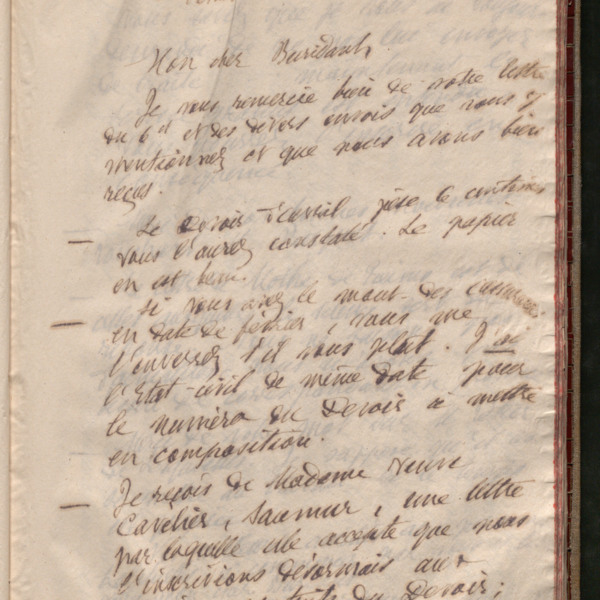 Mon cher Buridant,
Je vous remercie bien de votre lettre
du 6 et et des divers envois que vous y
mentionnez et que nous avons bien
reçus.
Le Devoir d'avril pèse le centimes
vous l'aurez constaté. Le papier
en est bon.
Si vous avez le mont. des
en date de février, vous me
l'enverrez s'il vous plait. J'ai
l'Etat-civil de même date pour
le numéro du Devoir à mettre
en composition.
Je reçois de Madame veuve
Cavelier, Saumur, une lettre
par laquelle elle accepte que nous
l'inscrivions désormais aux
du Devoir;